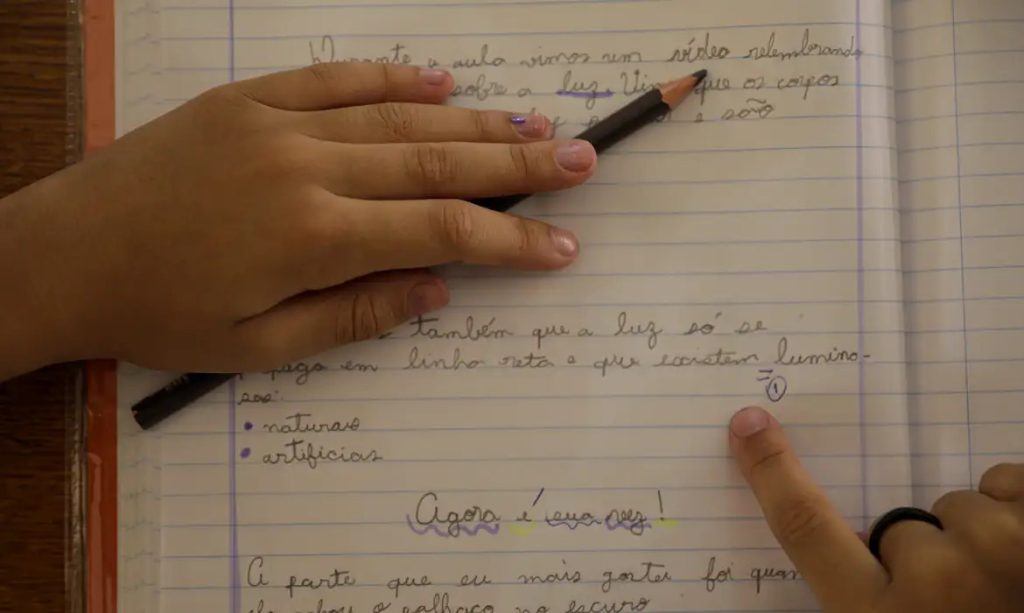 Durante a aula vimos um vídeo relembrando
sobre a luz. que os corpos
e são
também que a luz só se
em linha reta e que existem lumino-
sos:
= ①
• naturais
• artificiais
Agora é sua vez!
A parte que eu mais gostei foi
o palhaço no escuro